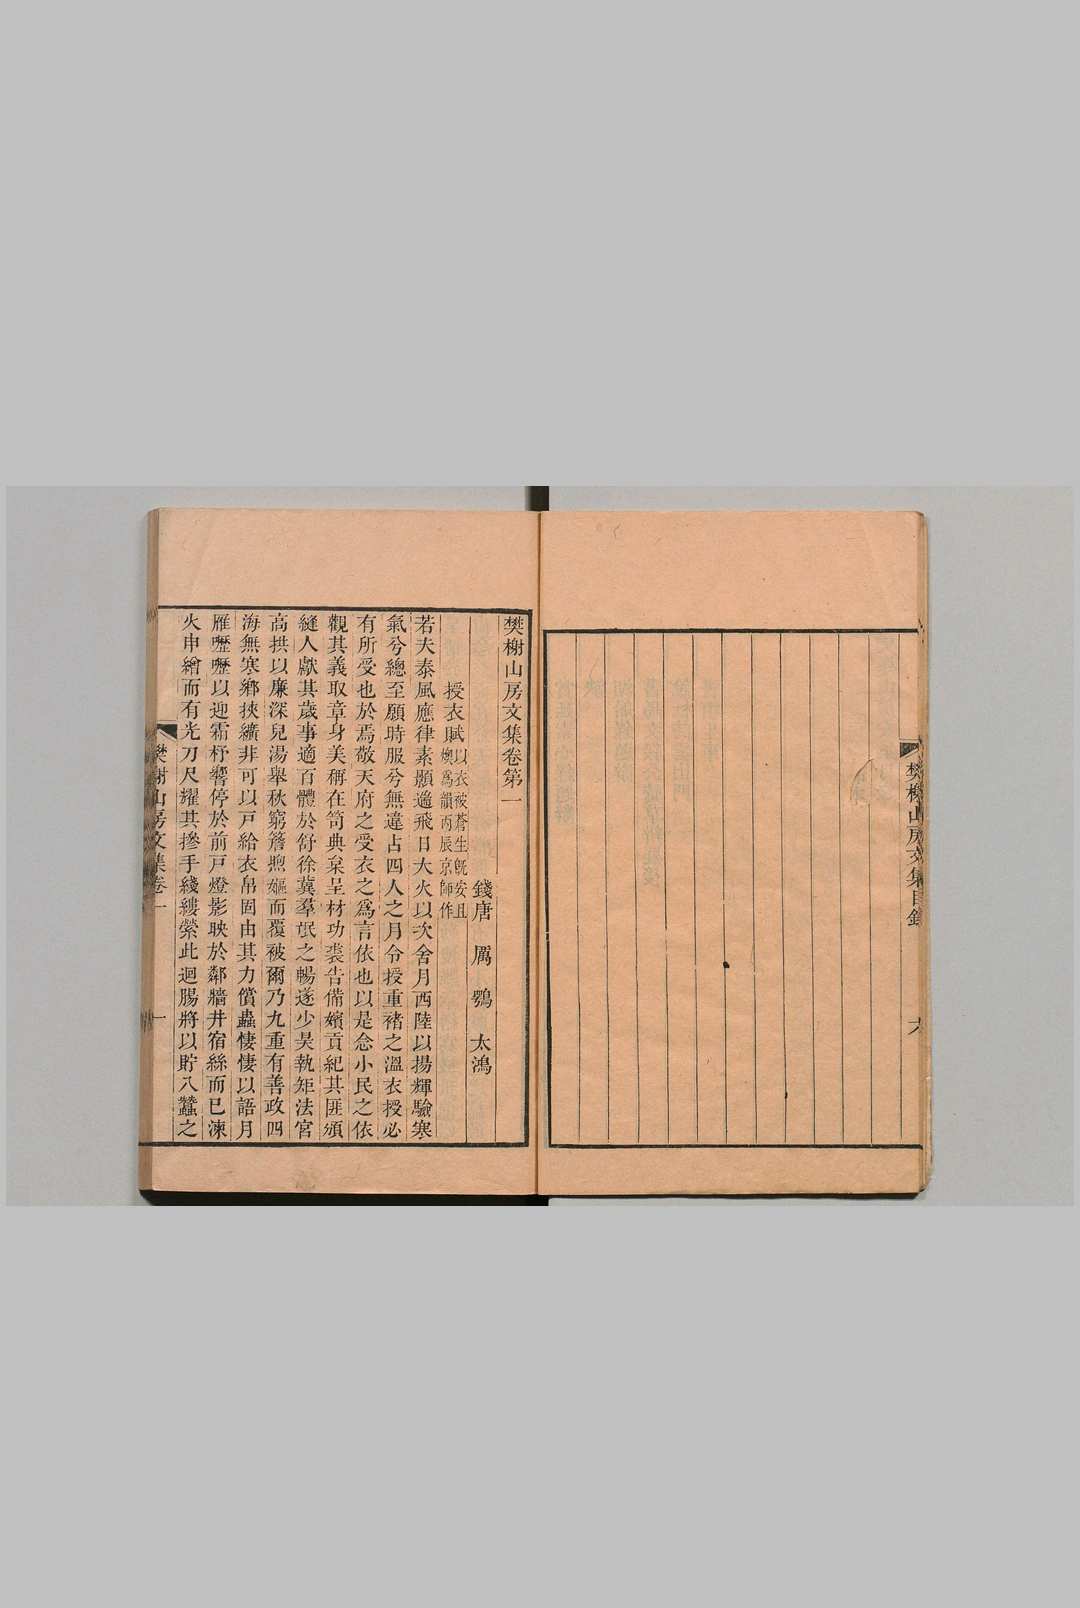 樊榭山房文集目錄
六
樊榭山房文集卷第一
錢唐 厲 鶚 太鴻
授衣賦以衣被蒼生旣安且
燠爲韻丙辰京師作
若夫泰風應律素顥適飛日大火以次舍月西陸以揚輝驗寒
氣兮總至願時服兮無違占四人之月令授重褚之溫衣授必
有所受也於焉敬天府之受衣之爲言依也以是念小民之依
觀其義取章身美稱在笥典枲呈材功裘告備嬪貢紀其匪頒
縫人獻其歲事適百體於舒徐冀羣氓之暢遂少昊執矩法官
高拱以廉深兒湯舉秋窮簷煦嫗而覆被爾乃九重有善政四
海無寒鄉挾纊非可以戸給衣帛固由其力償蟲悽悽以語月
雁嚦嚦以迎霜杼響停於前戸燈影映於鄰牆井宿絲而已湅
火申繪而有光刀尺耀其摻手綫縷縈此迴腸將以貯八蠶之
樊榭山房文集卷一
一